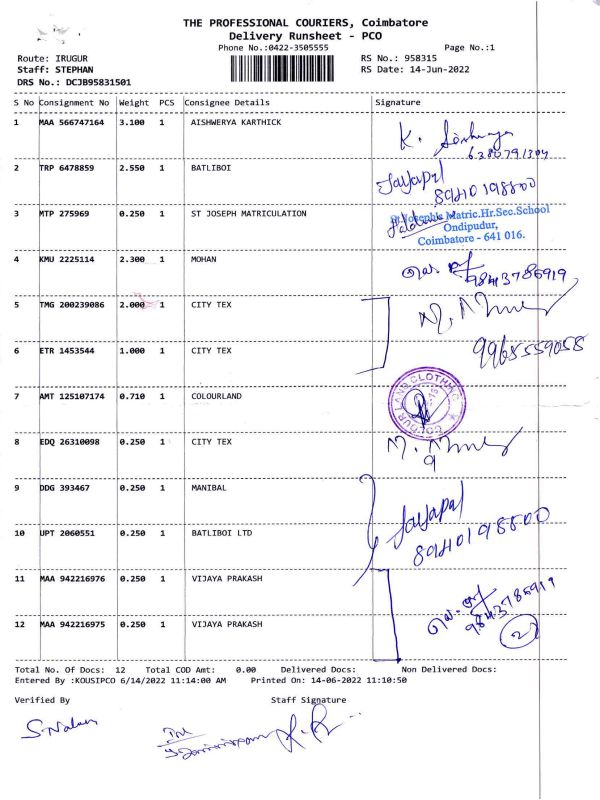 THE PROFESSIONAL COURIERS, Coimbatore
Delivery Runsheet - PCO
Phone No.:0422-3505555 Page No.:1
Route: IRUGUR RS No.: 958315
Staff: STEPHAN RS Date: 14-Jun-2022
DRS No.: DCJB95831501
S No Consignment No Weight PCS Consignee Details Signature
1 MAA 566747164 3.100 1 AISHWERYA KARTHICK
K.
6380791304
2 TRP 6478859 2.550 1 BATLIBOI
Jayapal
8940198800
3 MTP 275969 0.250 1 ST JOSEPH MATRICULATION
St.Joseph's Matric.Hr.Sec.School
Ondipudur,
Coimbatore - 641 016.
4 KMU 2225114 2.300 1 MOHAN
9843786919
5 TMG 200239086 2.000 1 CITY TEX
6 ETR 1453544 1.000 1 CITY TEX
9965559058
7 AMT 125107174 0.710 1 COLOURLAND
COLOUR LAND CLOTHING
8 EDQ 26310098 0.250 1 CITY TEX
9 DDG 393467 0.250 1 MANIBAL
Jayapal
10 UPT 2060551 0.250 1 BATLIBOI LTD
8940198800
11 MAA 942216976 0.250 1 VIJAYA PRAKASH
9843786919
12 MAA 942216975 0.250 1 VIJAYA PRAKASH
2
Total No. Of Docs: 12 Total COD Amt: 0.00 Delivered Docs: Non Delivered Docs:
Entered By :KOUSIPCO 6/14/2022 11:14:00 AM Printed On: 14-06-2022 11:10:50
Verified By Staff Signature